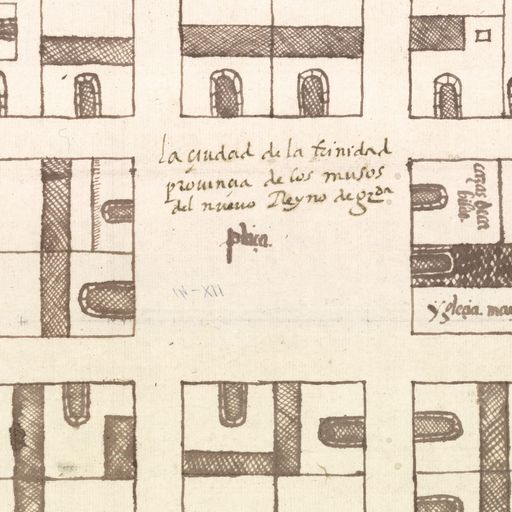 la çiudad de la trinidad
provinçia de los musos
del nuevo Reyno de grda
plaça.
casas de ca
bildo
IV-XII
ygleçia. ma